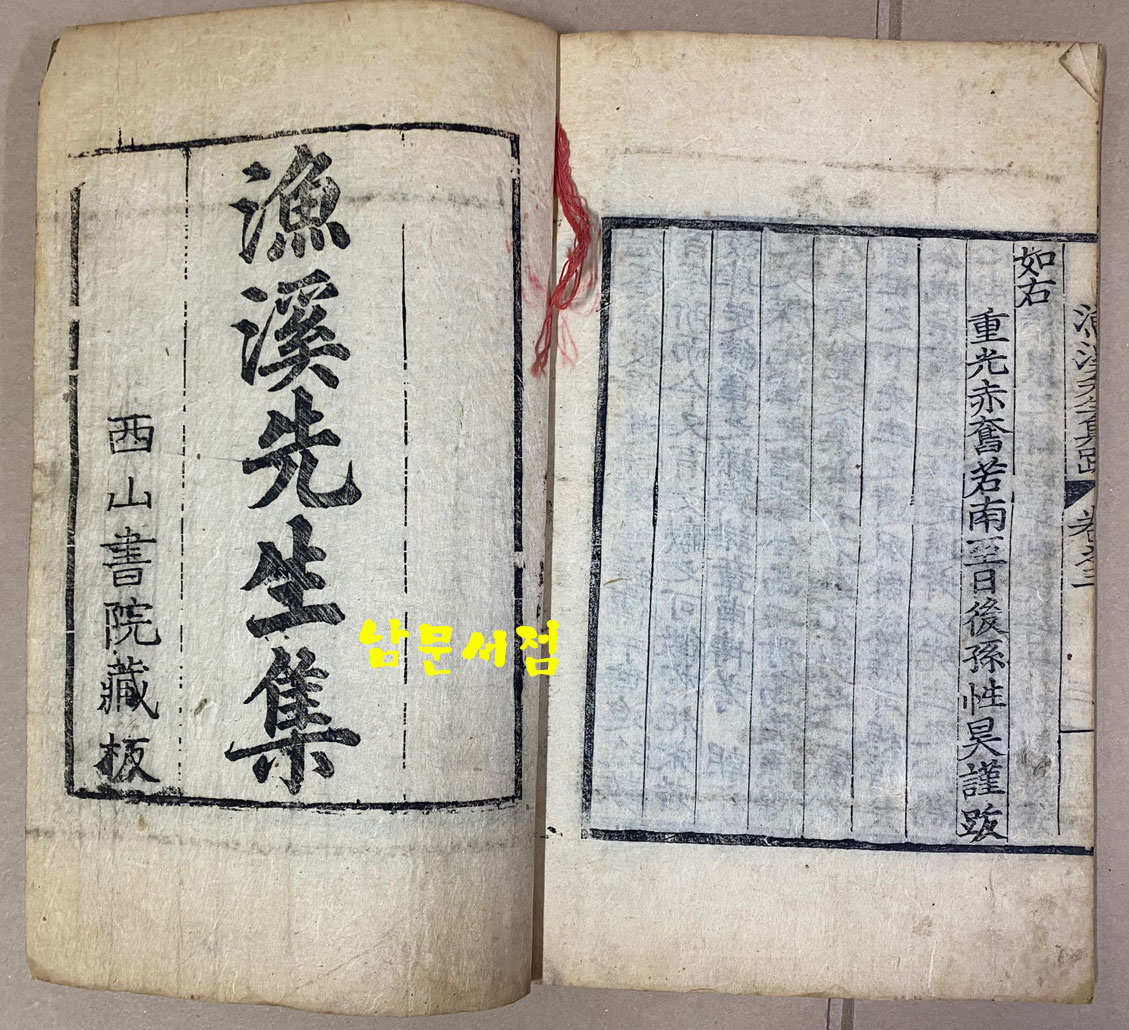 如右
重光赤奮若南至日後孫性昊謹跋
卷之三
一
漁溪先生集
西山書院藏板
남문서점